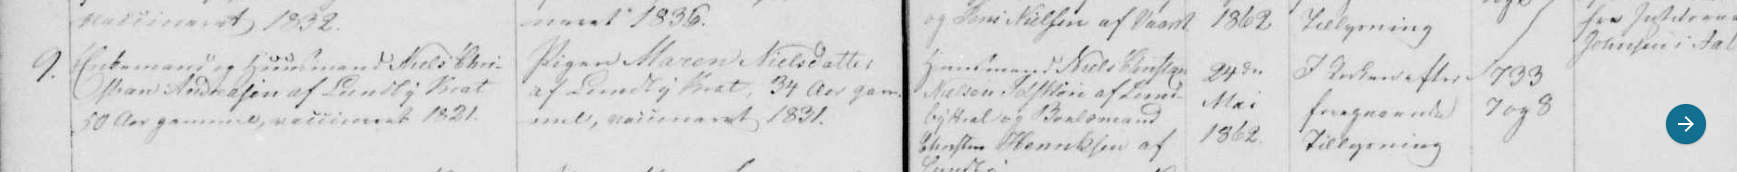 vaccineret 1832.
neret 1836.
og Jens Nielsen af Vaarst
1862
Tillysning
fra
Johnsen i
9.
Enkemand og Huusmand Niels Chri-
stian Andreasen af Lundby Krat
50 Aar gammel, vaccineret 1821.
Pigen Maren Nielsdatter
af Lundby Krat, 34 Aar gam-
mel, vaccineret 1831.
Huusmand Niels Christian
Nielsen af Lund-
bykrat og Boelsmand
Christen Henriksen af
Lundby
24de
Mai
1862.
I Kirken efter
foregaaende
Tillysning
733
7 og 8